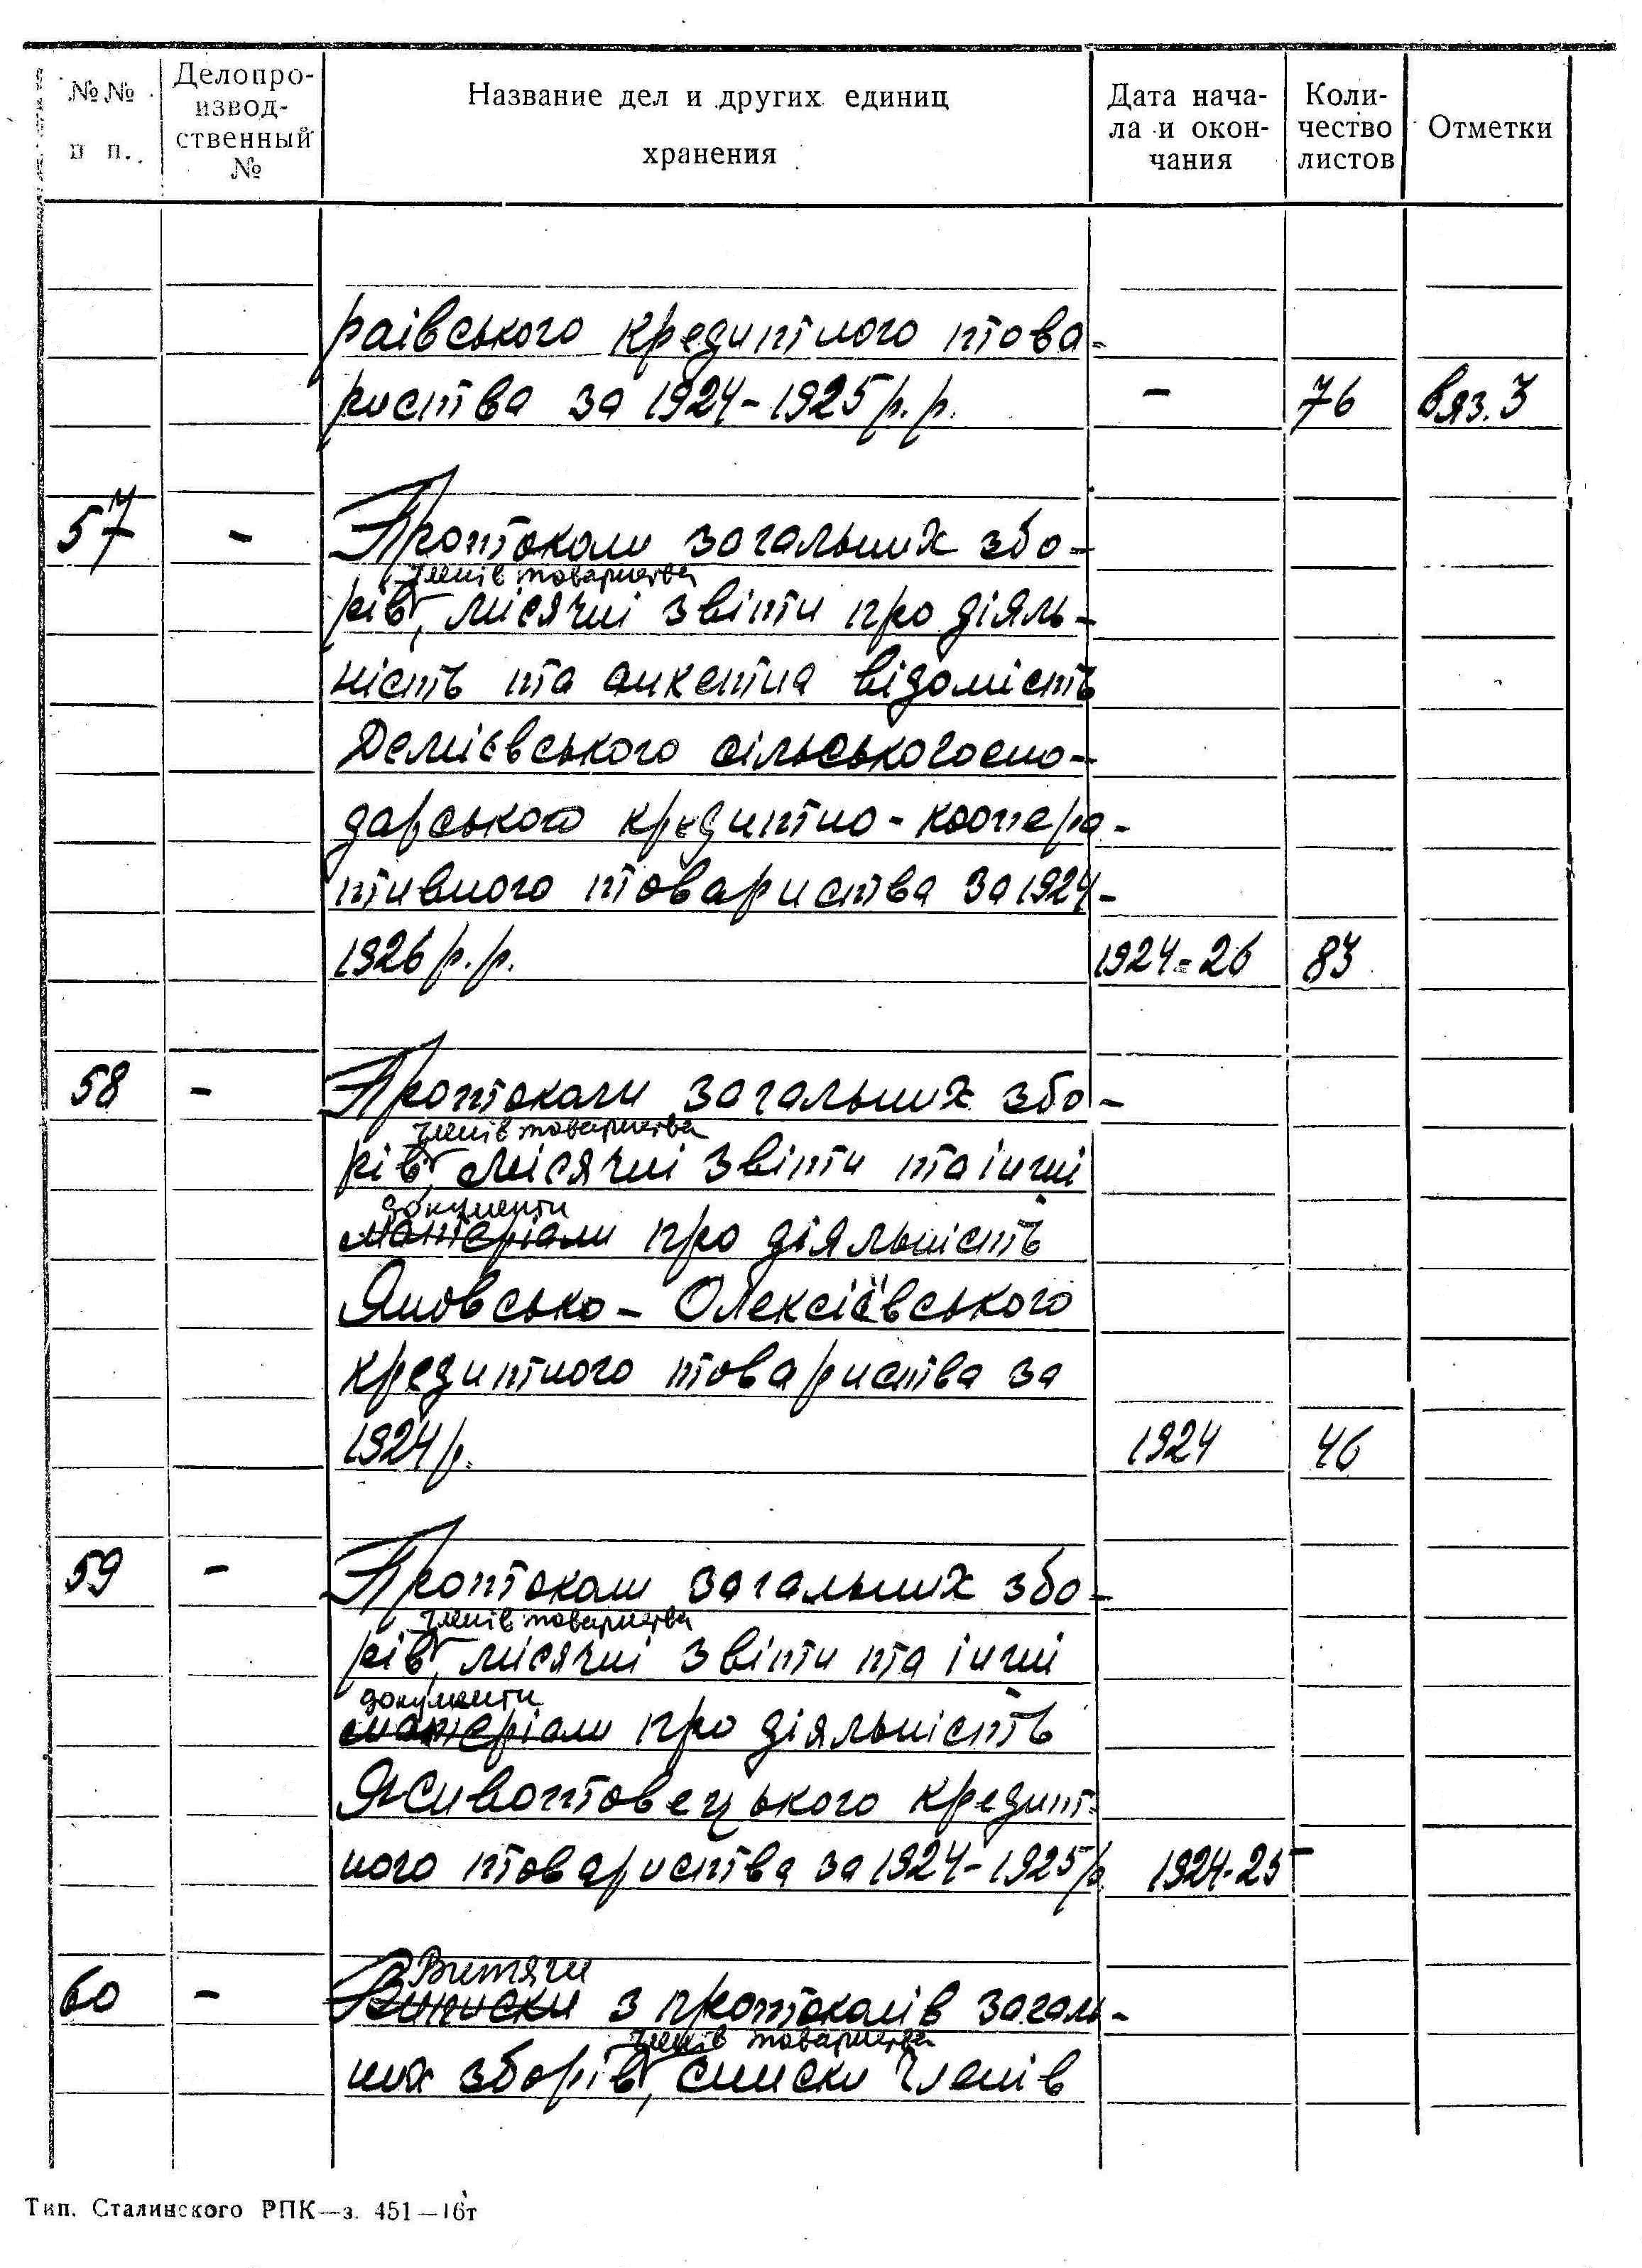 №№ п п.
Делопро-
извод-
ственный
№
Название дел и других единиц
хранения
Дата нача-
ла и окон-
чания
Коли-
чество
листов
Отметки
раївського кредитного това-
риства за 1924-1925 р.р. - 76 вяз. 3
57 - Протоколи загальних збо-
членів товариства
рів, місячні звіти про діяль-
ність та анкетна відомість
Демієвського сільськогоспо-
дарського кредитно-коопера-
тивного товариства за 1924-
1926 р.р. 1924-26 83
58 - Протоколи загальних збо-
членів товариства
рів, місячні звіти та інші
документи
матеріали про діяльність
Яновсько-Олексіївського
кредитного товариства за
1924 р. 1924 46
59 - Протоколи загальних збо-
членів товариства
рів, місячні звіти та інші
документи
матеріали про діяльність
Животовецького кредит-
ного товариства за 1924-1925 р. 1924-25
Витяги
60 - Виписки з протоколів загаль-
членів товариства
них зборів, списки членів
Тип. Сталинского РПК—з. 451—16т